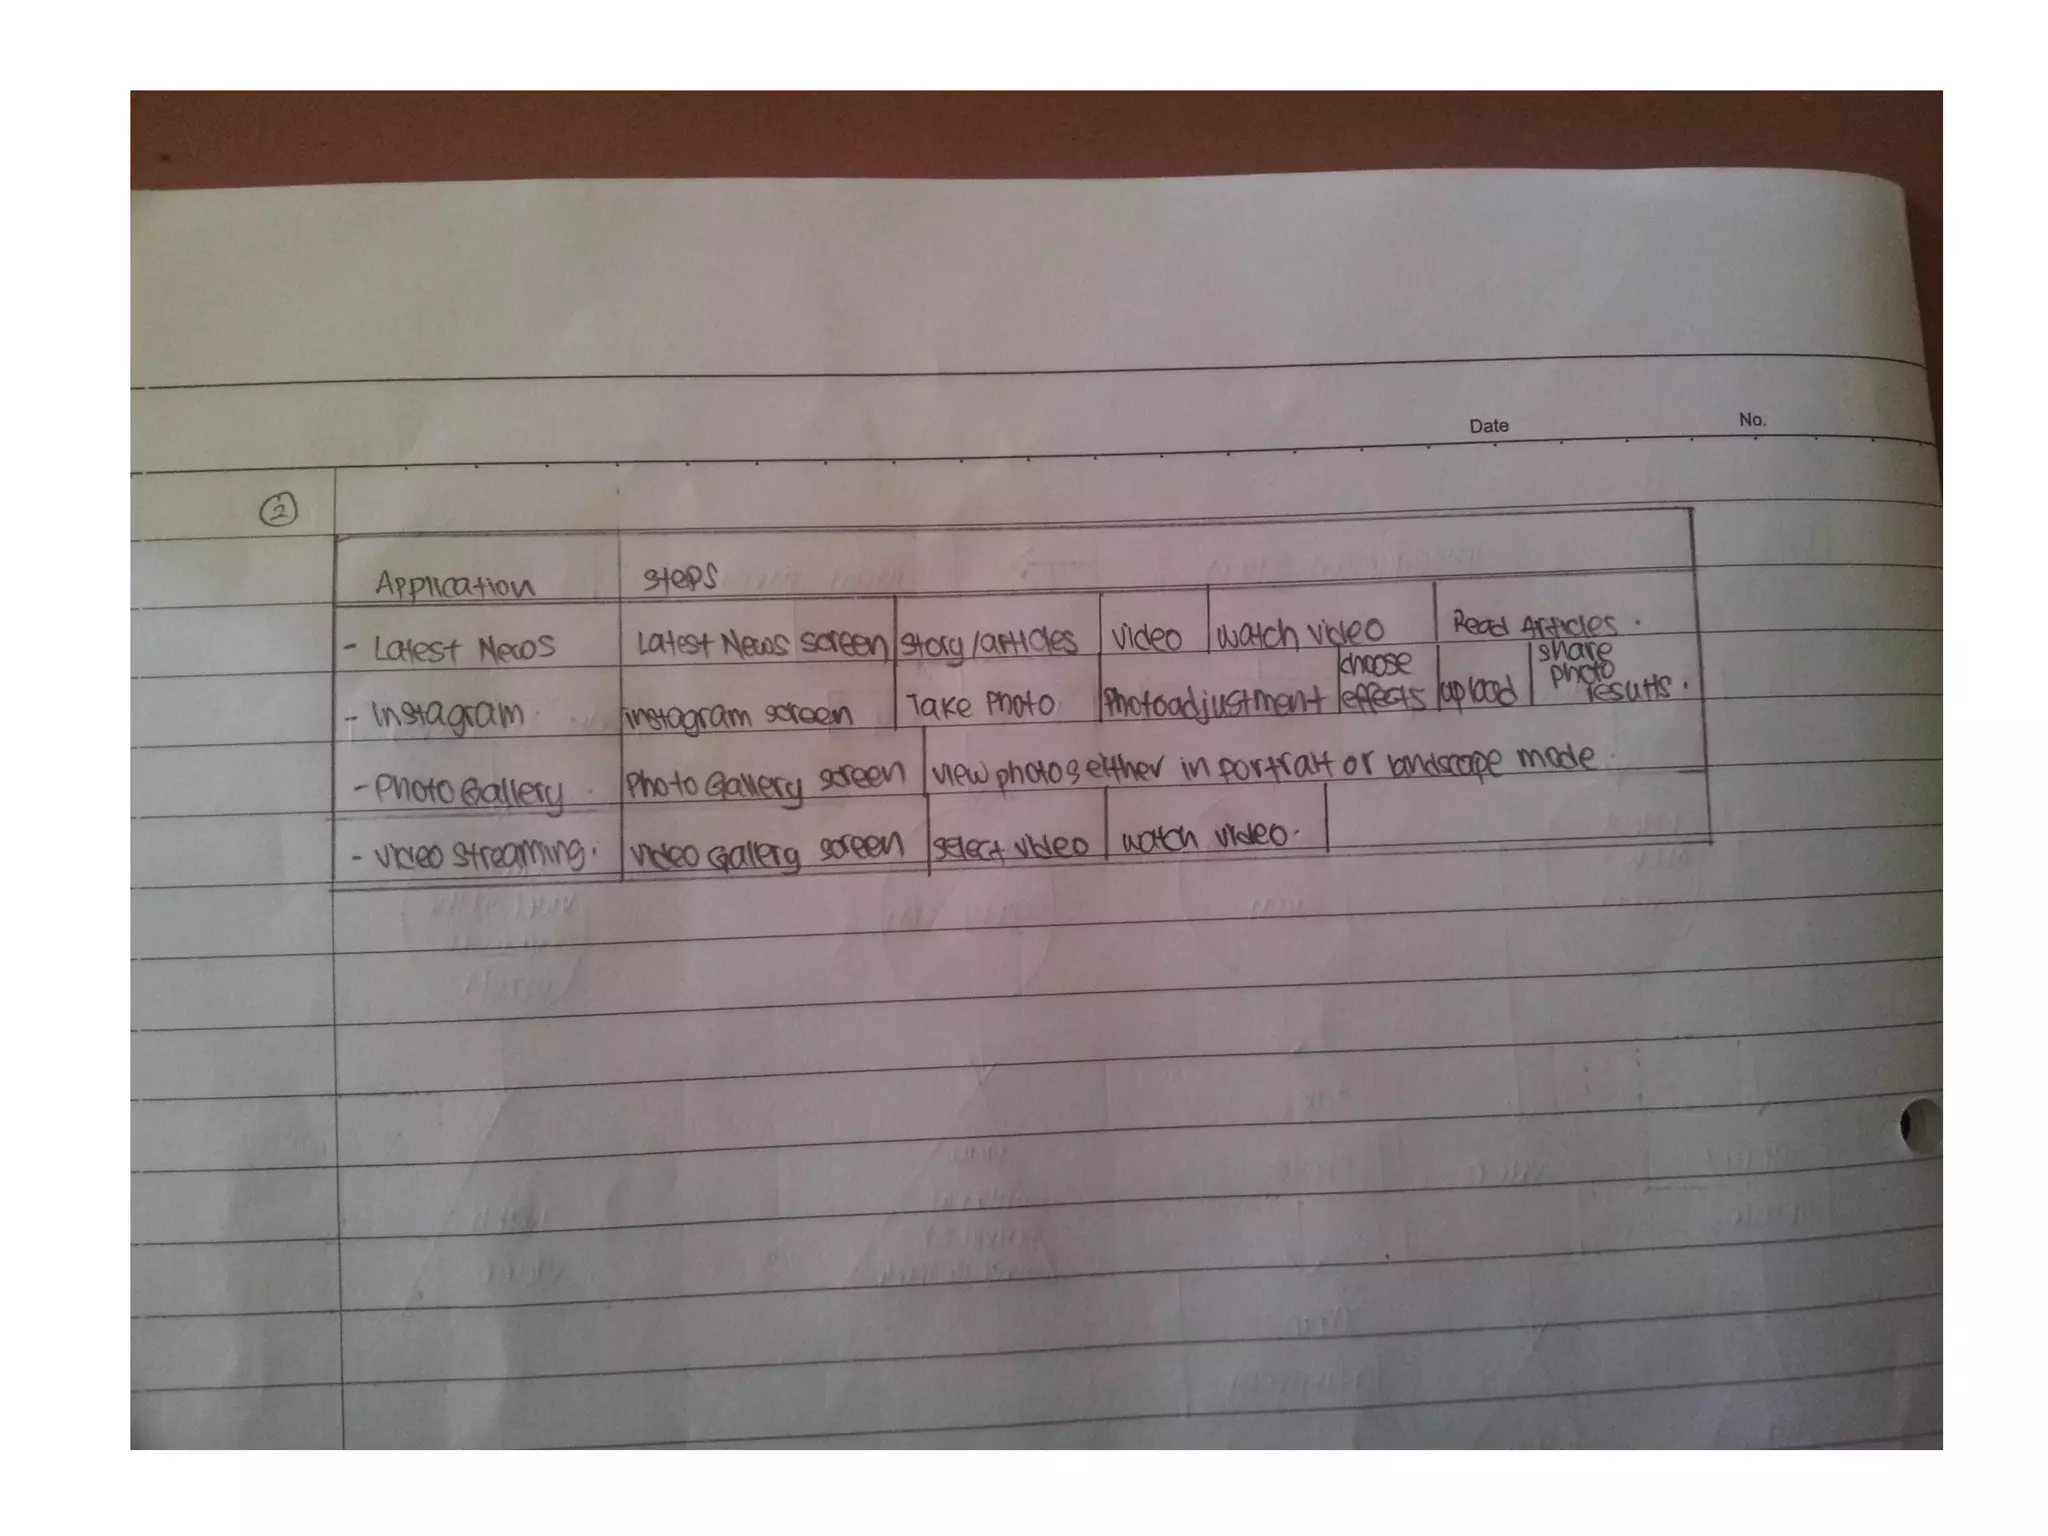 Date No.
②
Application steps
- Latest News Latest News screen story/articles video watch video Read Articles.
- Instagram instagram screen Take Photo Photoadjustment choose effects upload share photo results.
- Photo Gallery Photo Gallery screen view photos either in portrait or landscape mode
- video streaming. video Gallery screen select video watch video.